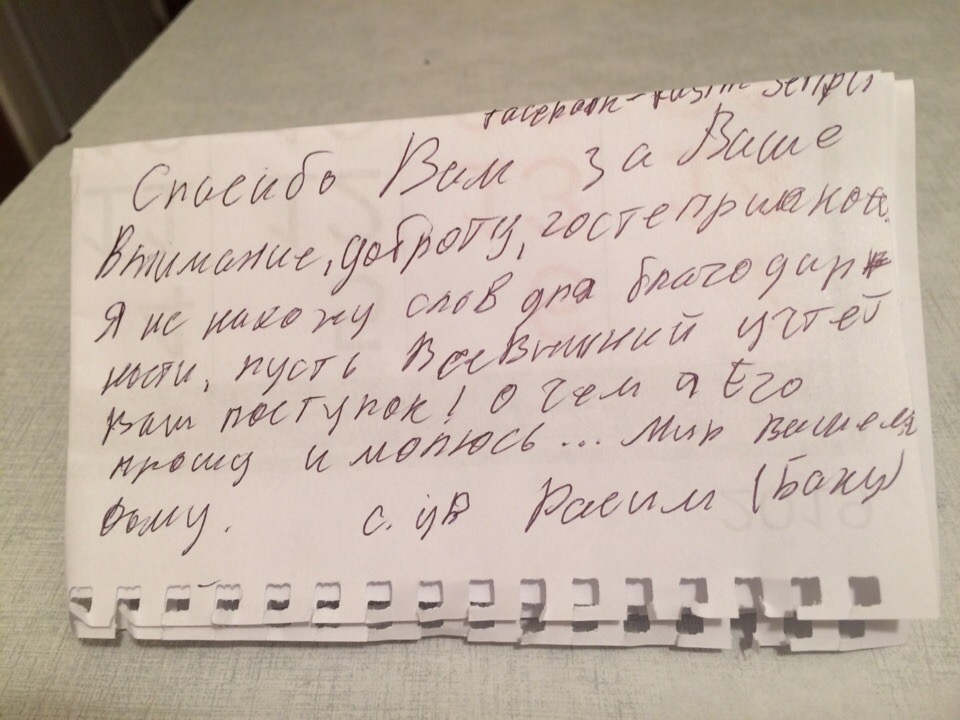 Facebook-
Спасибо Вам за Ваше
Внимание, доброту, гостеприимност.
Я не нахожу слов для благодар
ности, пусть Всевышний учтет
ваш поступок! О чем я Его
прошу и молюсь... Мир вашему
дому. с. ув Расим (Баку)